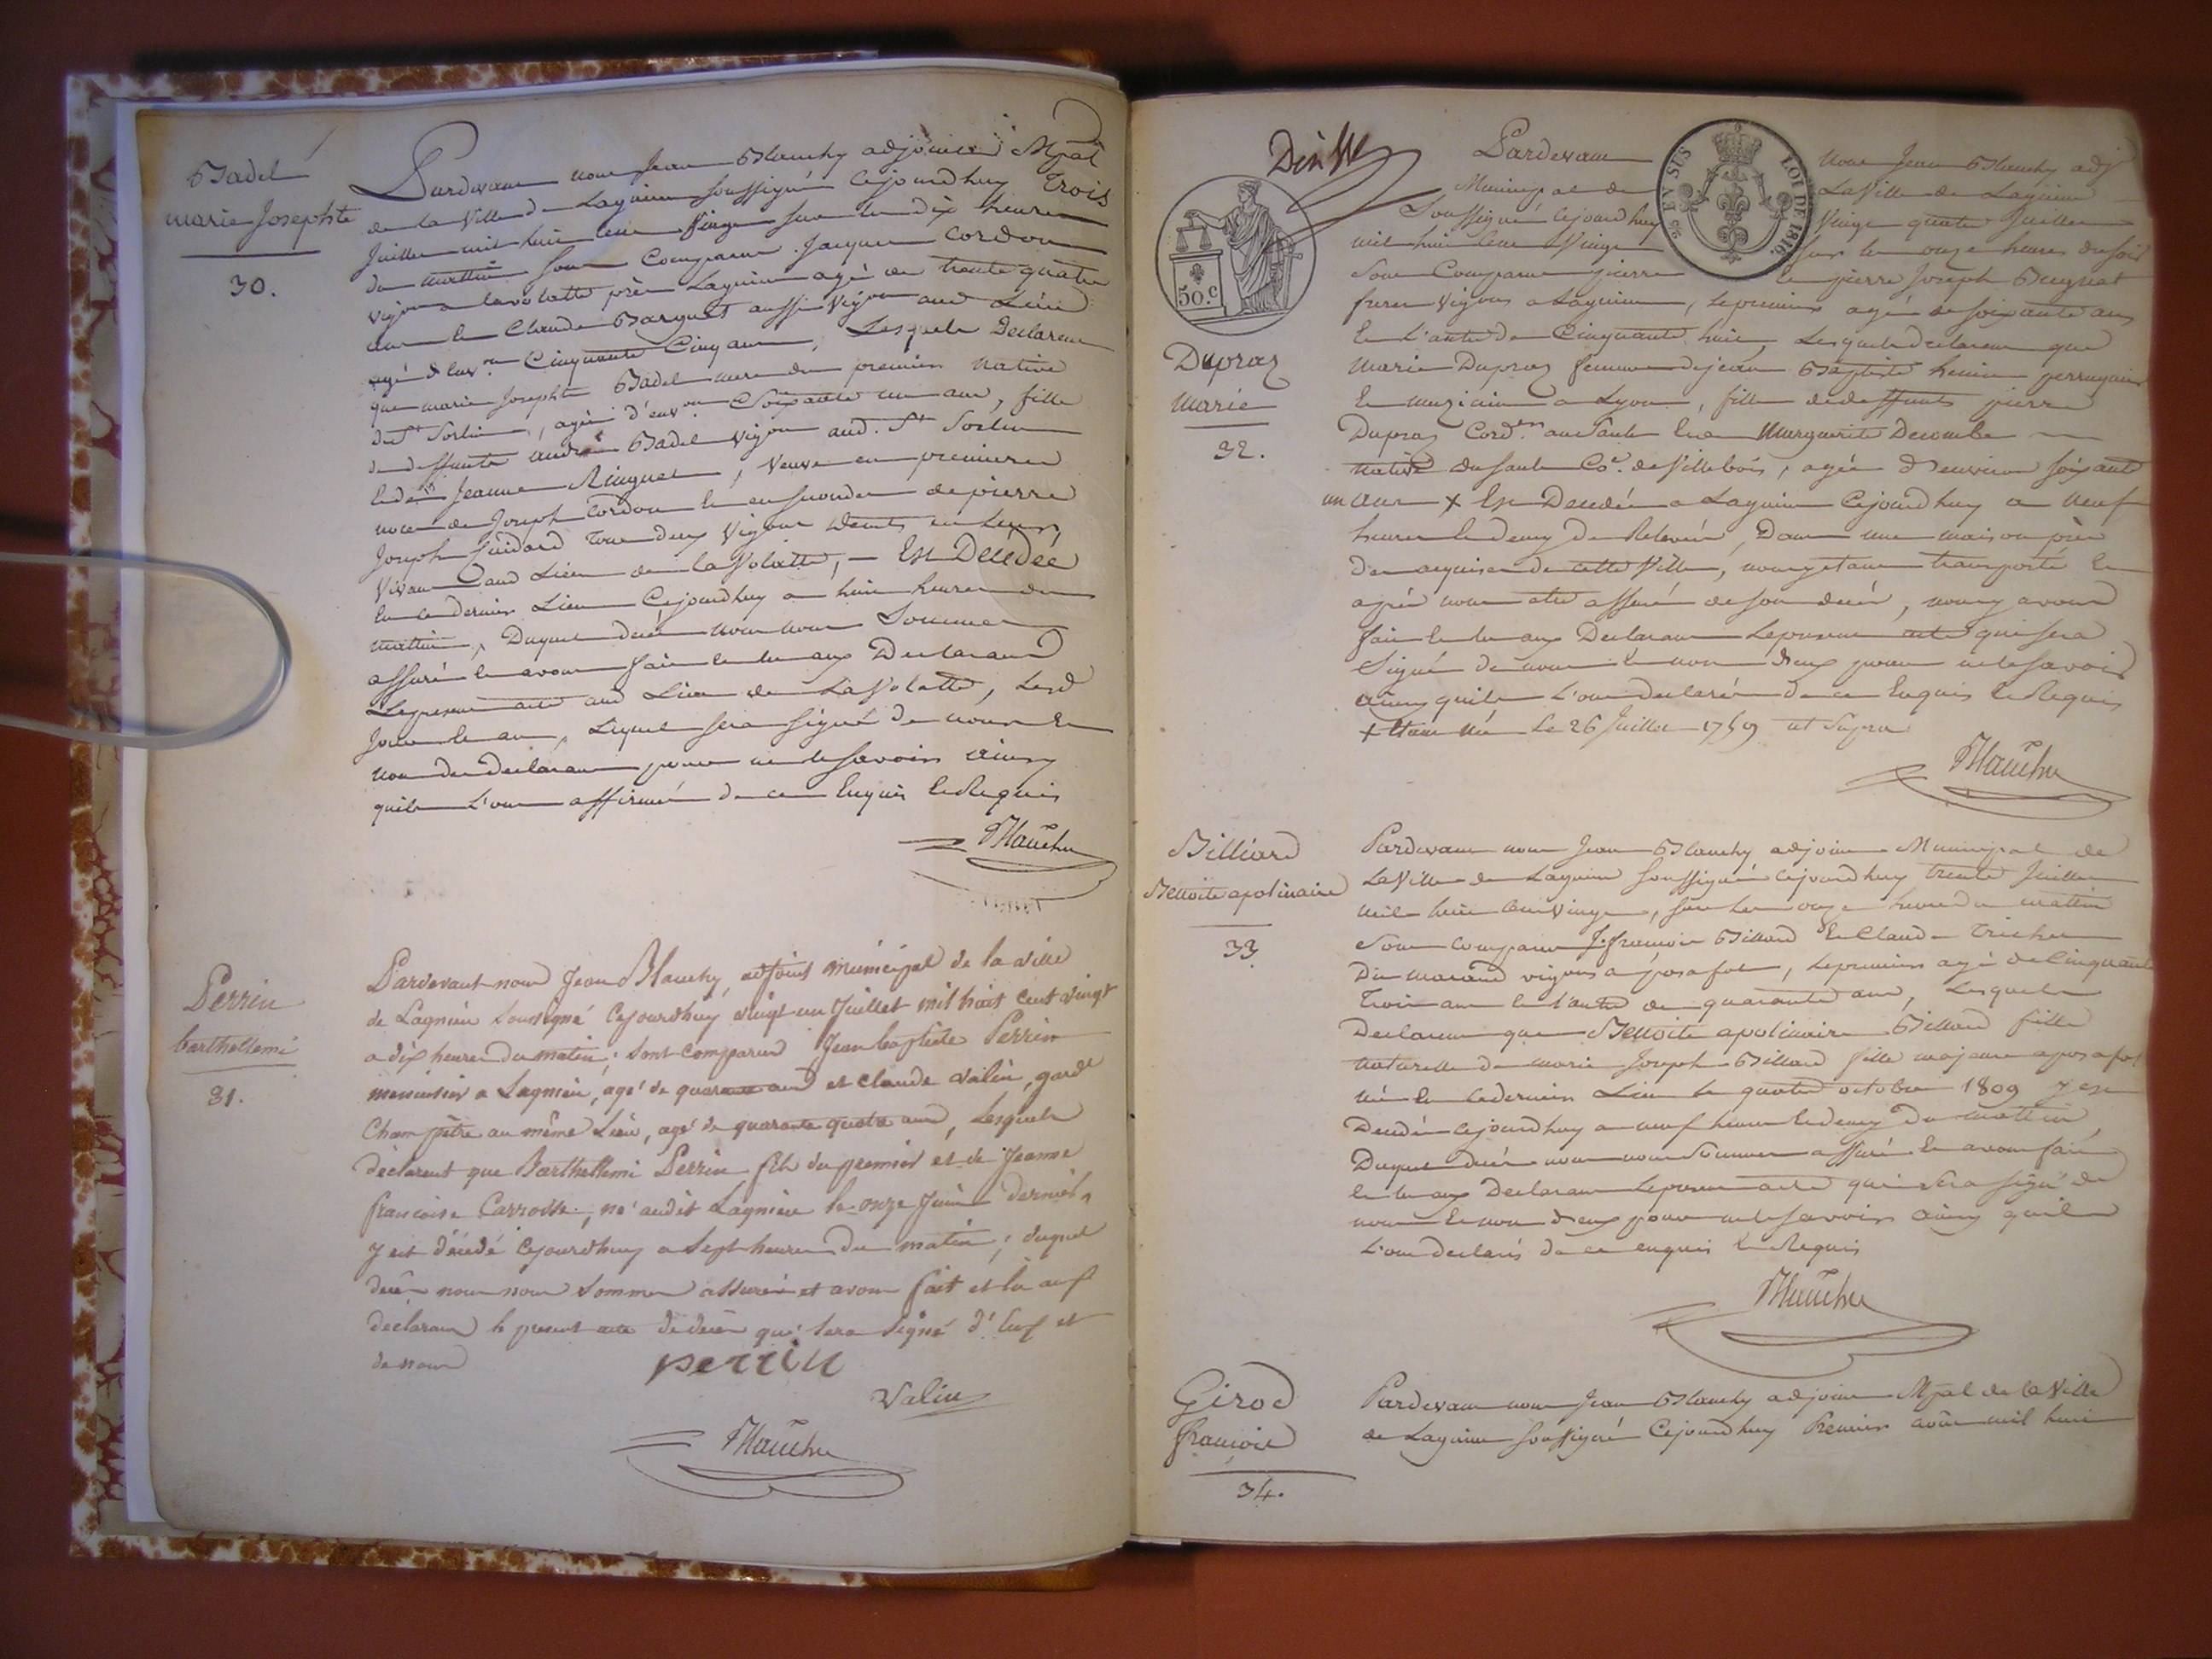 Badel
marie Josephte
30.
Pardevant nous Jean Blanchy adjoint Mpal
de la Ville de Lagnieu soussigné Cejourdhuy trois
Juillet mil huit cent Vingt sur les dix heures
du mattin sont Comparus Jacques Cordon
vigon a lavolatte près Lagnieu agé de trente quatre
ans et Claude Barquet aussi vigon aud Lieu
agé d'env.on Cinquante Cinq ans, Lesquels Declarent
que marie Josephte Badel mere du premier native
de St Sorlin, agée d'env.on Soixante un ans, fille
de deffunts andré Badel vigon aud. St Sorlin
et de Jeanne Ringuet, Veuve en premieres
noces de Joseph Cordon et en secondes de pierre
Joseph Guidard tous deux Vigons Demts en Leurs
Vivans aud Lieu de la Volatte, – Est Décédée
en ce dernier Lieu Cejourdhuy a huit heures du
mattin, Duquel decès nous nous Sommes
assuré et avons fait et lu aux Declarans
Lepresent acte aud Lieu de La Volatte, Lesd
Jour et an, Lequel sera signé de nous et
non des declarans pour ne le savoir ainsy
quils L'ont affirmé de ce Enquis et Requis
Blanchy
Perrin
barthellemi
31.
Pardevant nous Jean Blanchy, adjoint municipal de la ville
de Lagnieu soussigné Cejourdhuy vingt un Juillet mil huit Cent vingt
a dix heures du matin; sont comparus Jean baptiste Perrin
menuisier a Lagnieu, agé de quarante ans et Claude Valin, garde
Champêtre au même Lieu, agé de quarante quatre ans, Lesquels
déclarent que Barthellemi Perrin fils du premier et de Jeanne
françoise Carrosse, né audit Lagnieu le onze Juin dernier,
y est décédé Cejourdhuy a Sept heures du matin; duquel
decès nous nous Sommes assurés et avons fait et lu aux
declarans le present acte de decès qui sera Signé d'Eux et
de nous
perrin
Valin
Blanchy
50.c
3/10 EN SUS
LOI DE 1816
Dupraz
Marie
32.
Pardevant nous Jean Blanchy adj
Municipal de La Ville de Lagnieu
Soussigné Cejourdhuy Vingt quatre Juillet
mil huit Cent Vingt sur les onze heures du soir
Sont Comparus pierre et pierre Joseph Bugnat
freres vigons a Lagnieu, le premier agé de soixante ans
et L'autre de Cinquante huit, Lesquels declarent que
Marie Dupraz femme de jean Baptiste henin perruquier
et muzicien a Lyon, fille de deffunts pierre
Dupraz Cord.er au Sault et de Marguerite Decombe
native du Sault Cne. de Villebois, agée d'environ soixante
un ans x Est Decedée a Lagnieu Cejourdhuy a neuf
heures et demy de Relevée, Dans une maison près
de cette Ville, nous y etant transporté et
après nous etre assuré de son decès, nous y avons
fait et lu aux Declarans Lepresent acte qui sera
Signé de nous et non d'eux pour ne le savoir
ainsy quils L'ont declaré de ce Enquis et Requis
x etant née Le 26 Juillet 1759 ut Supra
Blanchy
Billiard
Benoite apolinaire
33
Pardevant nous Jean Blanchy adjoint Municipal de
La Ville de Lagnieu soussigné Cejourdhuy trente Juillet
mil huit Cent Vingt, sur les onze heures du mattin
Sont comparus J. françois Billiard et Claude Tricher
Dit marand vigons a posafol, le premier agé de Cinquante
trois ans et l'autre de quarante ans, Lesquels
Declarent que Benoite apolinaire Billiard fille
naturelle de marie Joseph Billiard fille majeure a posafol
née en ce dernier Lieu le quatre octobre 1809 y est
Decedée cejourdhuy a neuf heures et demy du mattin,
Duquel decès nous nous sommes assuré et avons fait
et lu aux Declarans Lepresent acte qui sera signé de
nous et non d'eux pour ne le savoir ainsy quils
L'ont declaré de ce enquis et Requis
Blanchy
Girod
françois
34.
Pardevant nous Jean Blanchy adjoint Mpal de la Ville
de Lagnieu soussigné Cejourdhuy Premier août mil huit